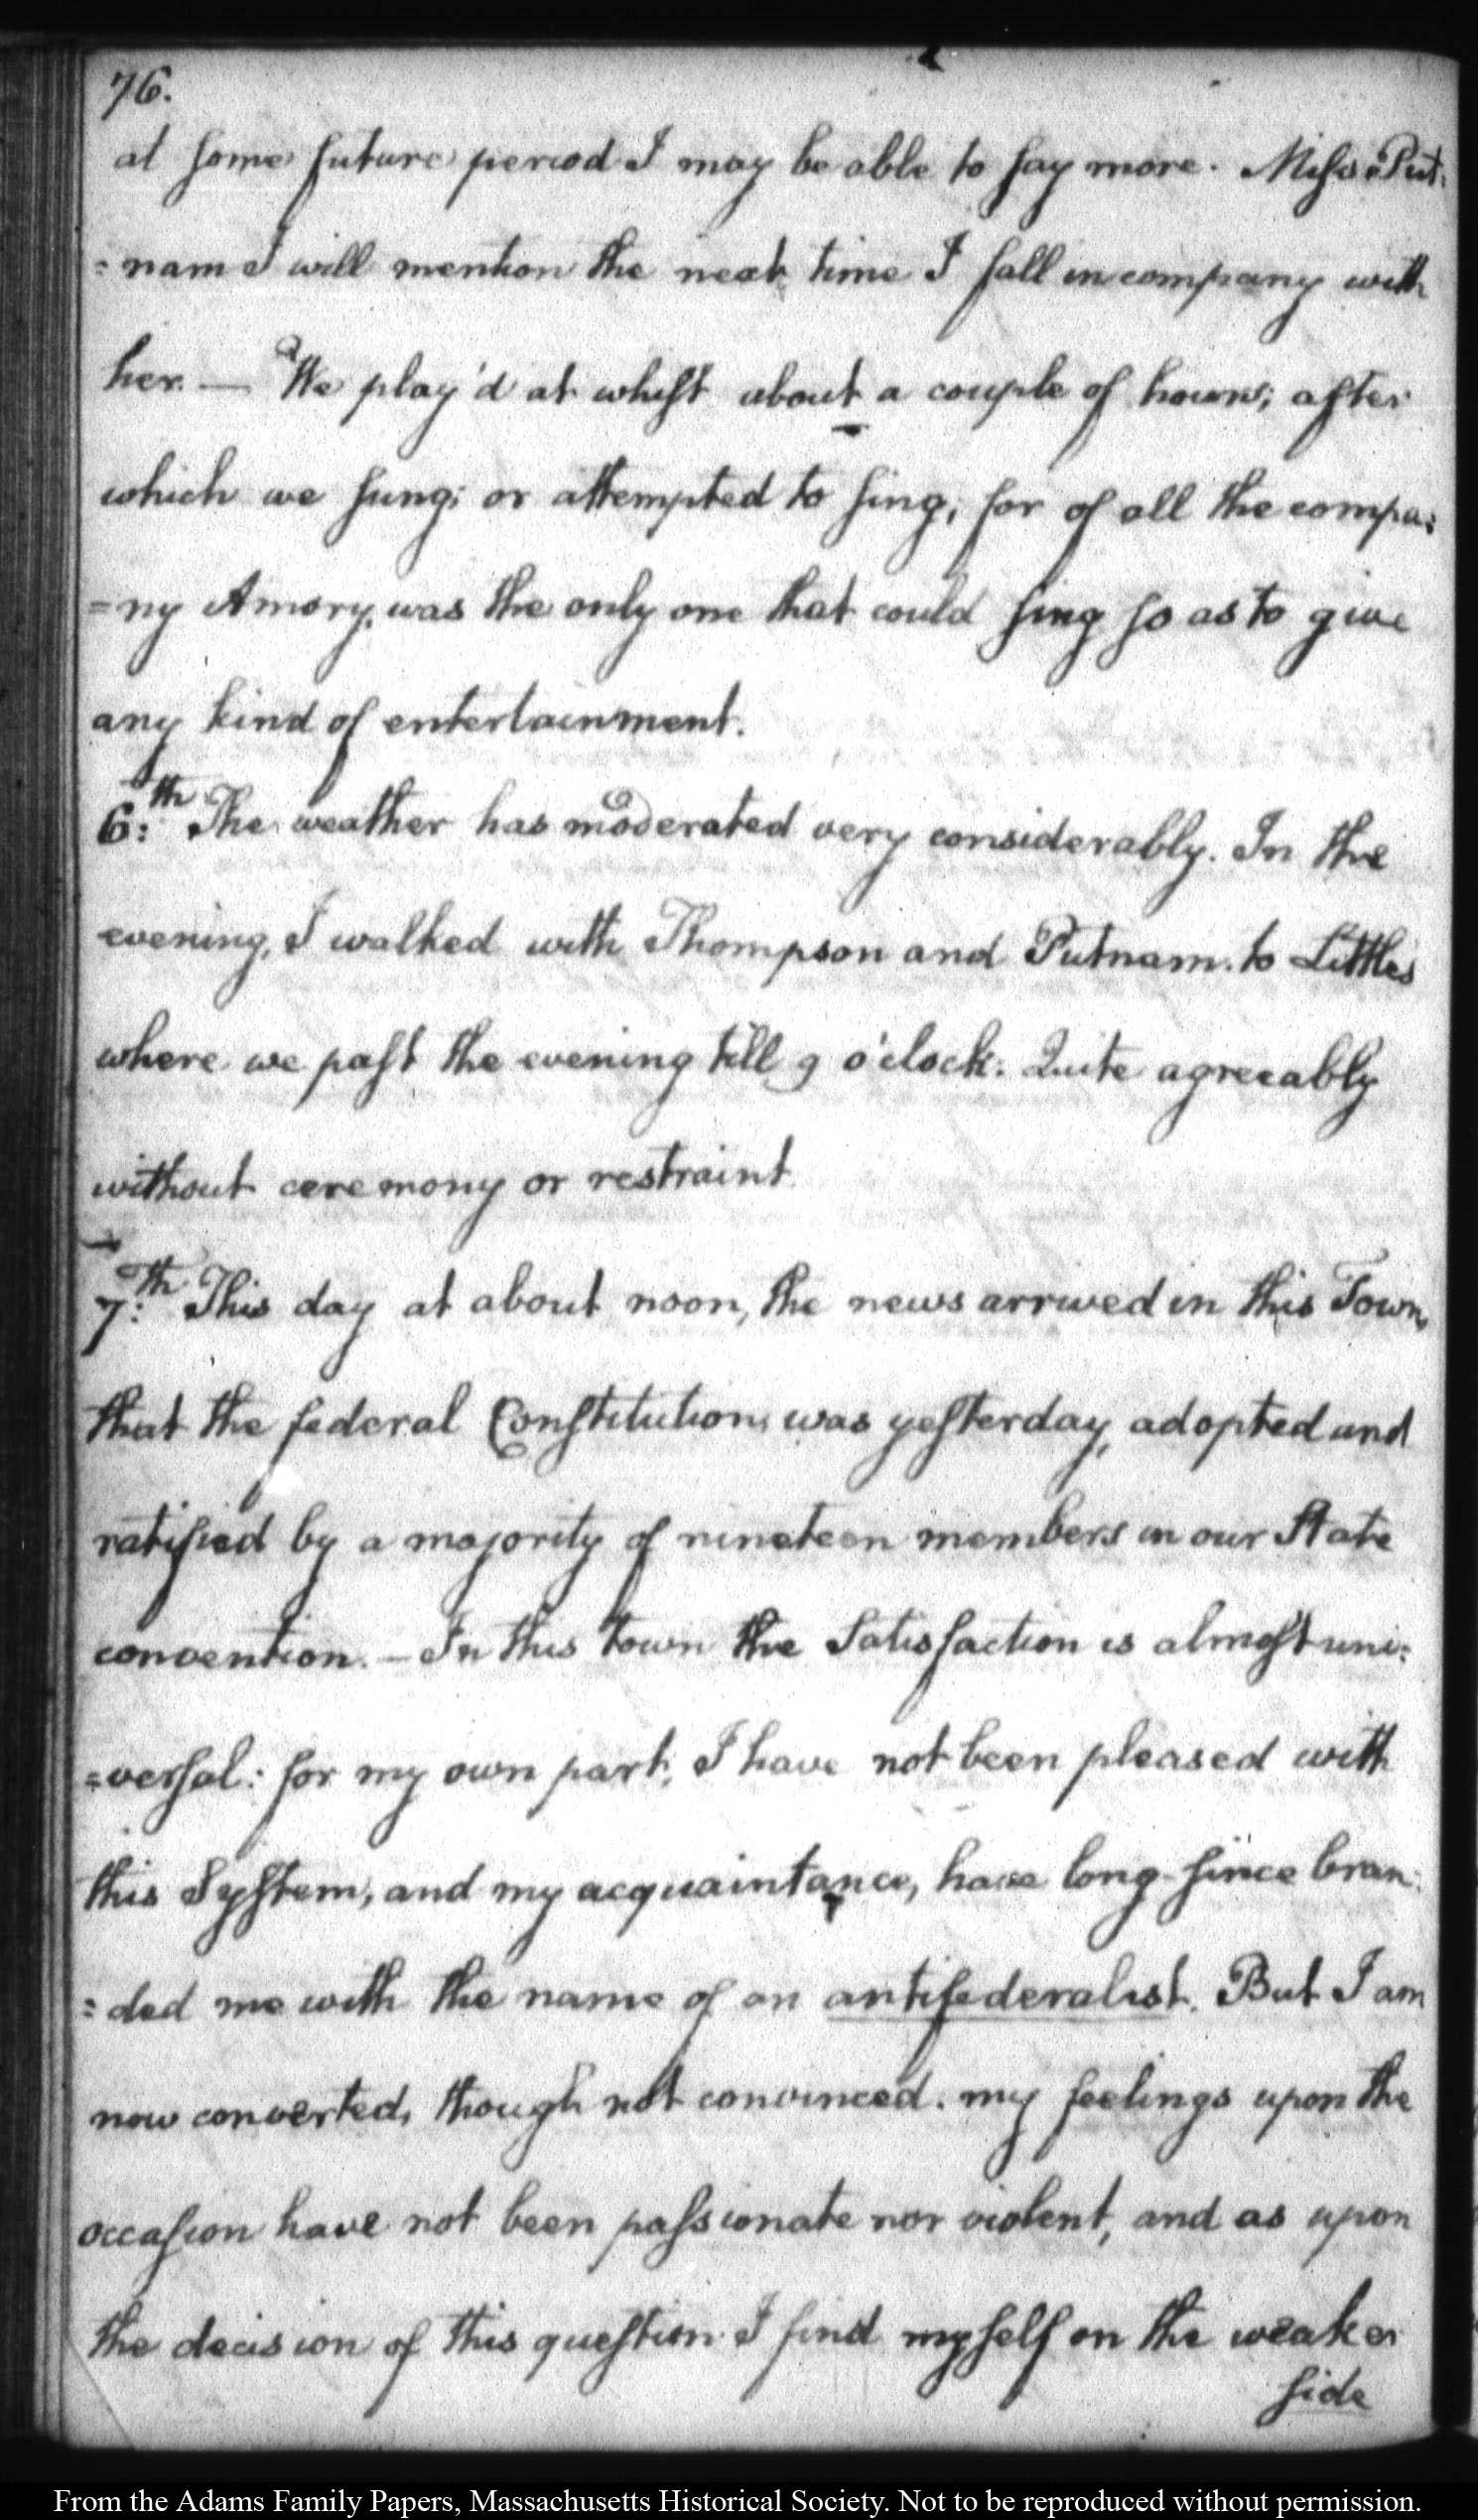 76.
at some future period I may be able to say more. Miss Put=
=nam I will mention the next time I fall in company with
her. — We play'd at whist about a couple of hours; after
which we sung; or attempted to sing; for of all the compa=
=ny Amory, was the only one that could sing so as to give
any kind of entertainment.
6:th The weather has moderated very considerably. In the
evening, I walked with Thompson and Putnam to Little's
where we past the evening till 9 o'clock. Quite agreeably
without ceremony or restraint
7:th This day at about noon, the news arrived in this Town,
that the federal Constitution, was yesterday, adopted and
ratified by a majority of nineteen members in our State
convention. — In this town the Satisfaction is almost uni=
=versal: for my own part, I have not been pleased with
this System, and my acquaintance, have long-since bran=
=ded me with the name of an antifederalist. But I am
now converted, though not convinced. my feelings upon the
occasion have not been passionate nor violent, and as upon
the decision of this question I find myself on the weaker
side
From the Adams Family Papers, Massachusetts Historical Society. Not to be reproduced without permission.